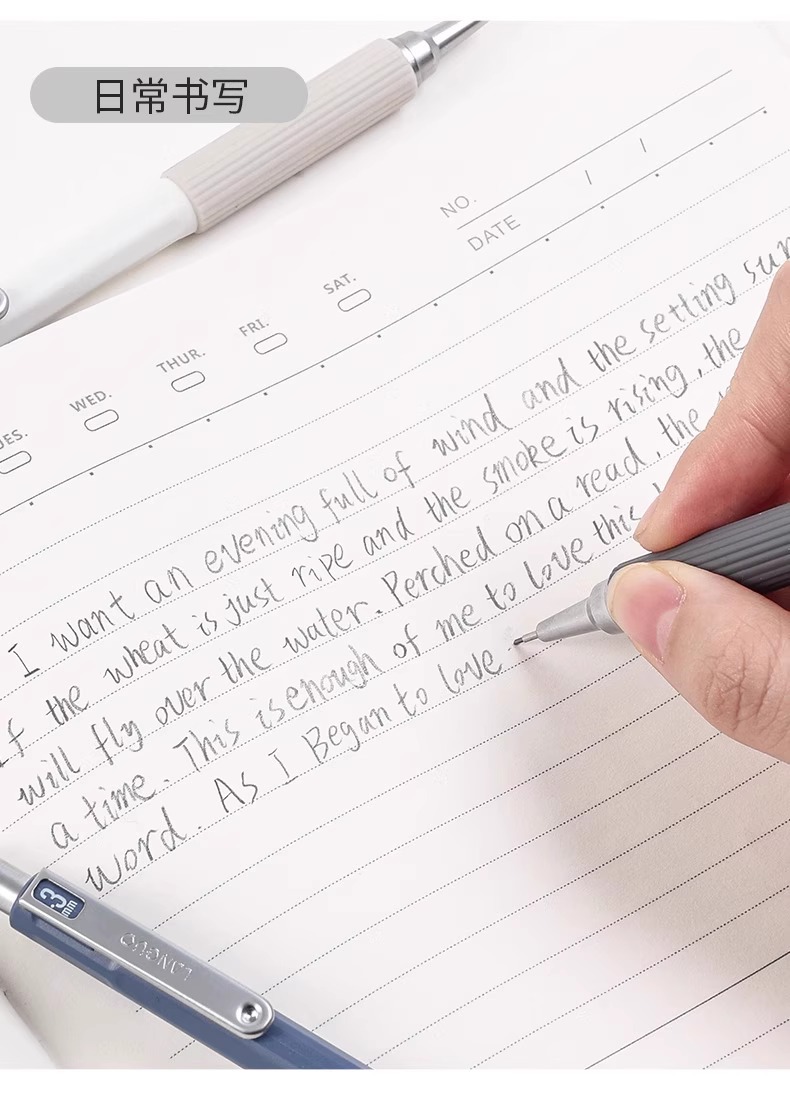 日常书写
NO.
DATE / /
WED. THUR. FRI. SAT.
I want an evening full of wind and the setling
If the wheat is just ripe and the smoke is rising, the
will fly over the water. Perched on a read, the
a time. This is enough of me to love this
word. As I Began to love
.3mm
LANGUO